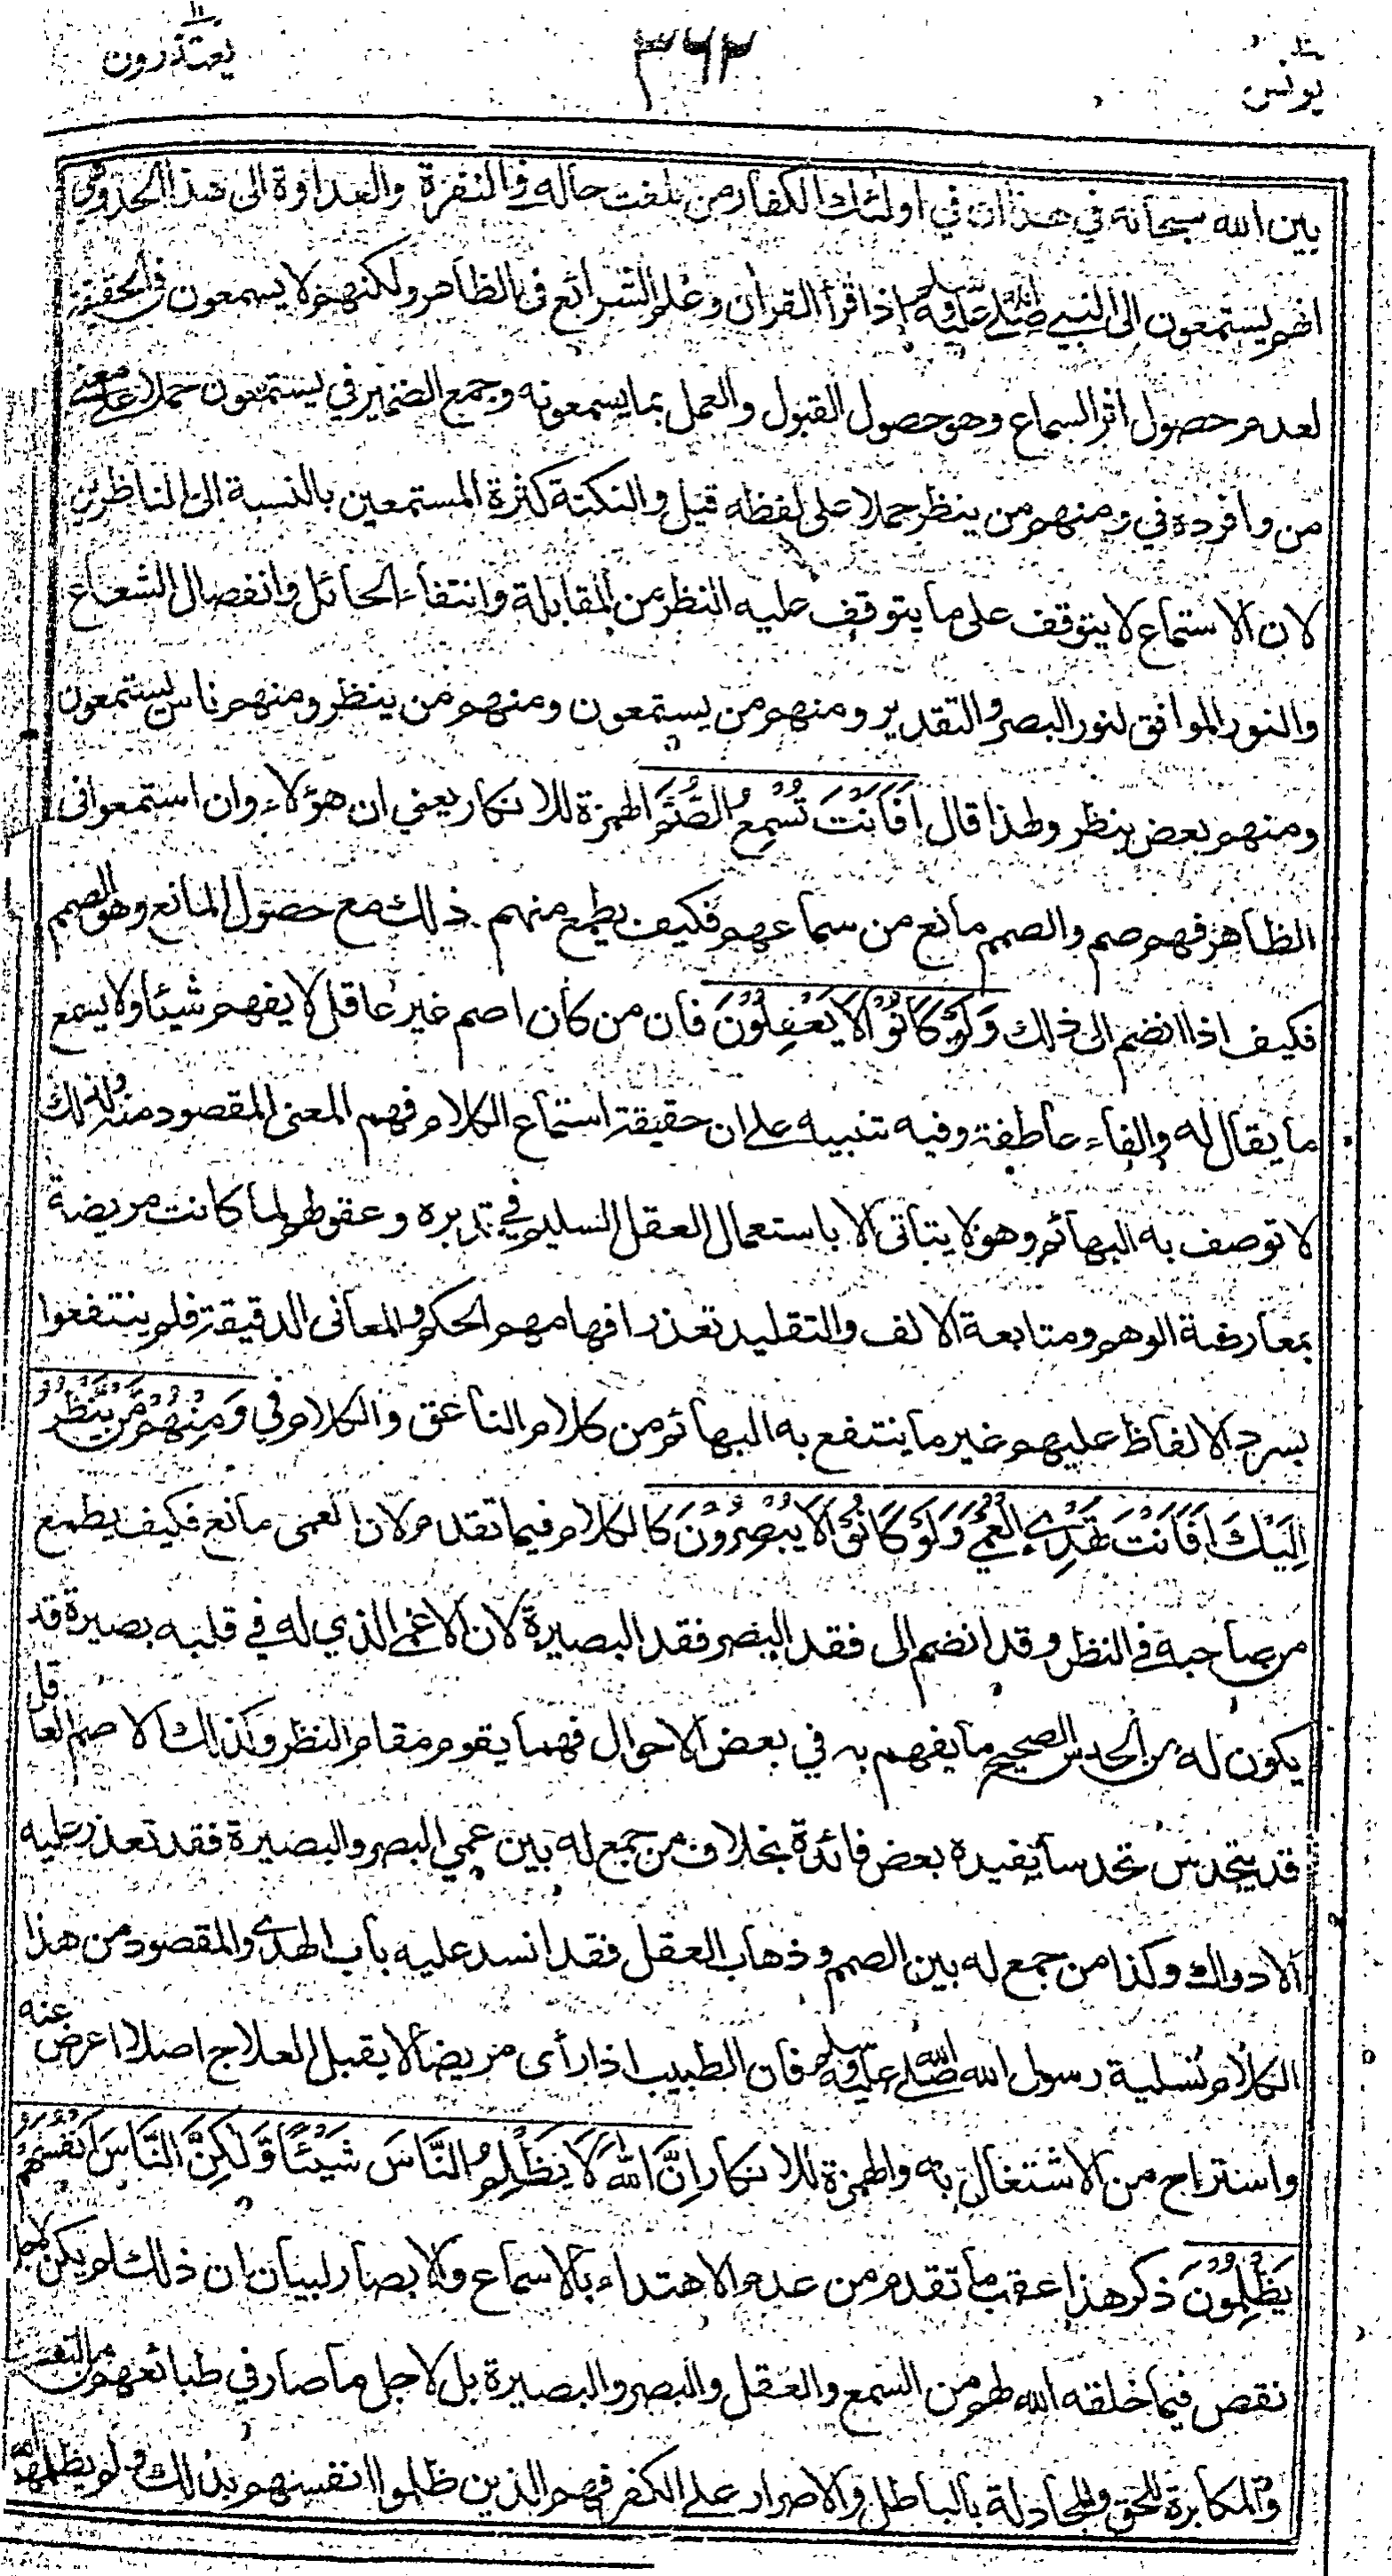 يونس
٣٦٢
يعتذرون ١١
بين الله سبحانه في هذا ان في اولئك الكفار من بلغت حاله في النفرة والعداوة الى هذا الحد وهي
انهم يستمعون الى النبي صلى الله عليه وسلم اذا قرأ القرآن وعلم الشرائع في الظاهر ولكنهم لا يسمعون في الحقيقة
لعدم حصول اثر السماع وهو حصول القبول والعمل بما يسمعونه وجمع الضمير في يستمعون حملا على معنى
من وافرده في ومنهم من ينظر حملا على لفظه قيل والنكتة كثرة المستمعين بالنسبة الى الناظرين
لان الاستماع لا يتوقف على ما يتوقف عليه النظر من المقابلة وانتفاء الحائل وانفصال الشعاع
والنور الموافق لنور البصر والتقدير ومنهم من يستمعون ومنهم من ينظر ومنهم ناس يستمعون
ومنهم بعض ينظر ولهذا قال اَفَاَنْتَ تُسْمِعُ الصُّمَّ الهمزة للانكار يعني ان هؤلاء وان استمعوا في
الظاهر فهم صم والصمم مانع من سماعهم فكيف يطمع منهم ذلك مع حصول المانع وهو الصمم
فكيف اذا انضم الى ذلك وَلَوْ كَانُوْا لَا يَعْقِلُوْنَ فان من كان اصم غير عاقل لا يفهم شيئا ولا يسمع
ما يقال له والفاء عاطفة وفيه تنبيه على ان حقيقة استماع الكلام فهم المعنى المقصود منه ولذلك
لا توصف به البهائم وهو لا يتأتى الا باستعمال العقل السليم في تدبره وعقولهم لما كانت مريضة
بمعارضة الوهم ومتابعة الالف والتقليد تعذر افهامهم الحكم والمعاني الدقيقة فلم ينتفعوا
بسرد الالفاظ عليهم غير ما ينتفع به البهائم من كلام الناعق والكلام في وَمِنْهُمْ مَّنْ يَّنْظُرُ
اِلَيْكَ اَفَاَنْتَ تَهْدِي الْعُمْيَ وَلَوْ كَانُوْا لَا يُبْصِرُوْنَ كالكلام فيما تقدم لان العمى مانع فكيف يطمع
من صاحبه في النظر وقد انضم الى فقد البصر فقد البصيرة لان الاعمى الذي له في قلبه بصيرة قد
يكون له من الحدس الصحيح ما يفهم به في بعض الاحوال فهما يقوم مقام النظر وكذلك الاصم العاقل
قد يتحدس تحدسا يفيده بعض فائدة بخلاف من جمع له بين عمي البصر والبصيرة فقد تعذر عليه
الادراك وكذا من جمع له بين الصمم وذهاب العقل فقد انسد عليه باب الهدى والمقصود من هذا
الكلام تسلية رسول الله صلى الله عليه وسلم فان الطبيب اذا رأى مريضا لا يقبل العلاج اصلا اعرض عنه
واستراح من الاشتغال به والهمزة للانكار اِنَّ اللّٰهَ لَا يَظْلِمُ النَّاسَ شَيْئًا وَّلٰكِنَّ النَّاسَ اَنْفُسَهُمْ
يَظْلِمُوْنَ ذكر هذا عقب ما تقدم من عدم الاهتداء بالاسماع والابصار لبيان ان ذلك لم يكن لاجل
نقص فيما خلقه الله لهم من السمع والعقل والبصر والبصيرة بل لاجل ما صار في طبائعهم من التعصب
والمكابرة للحق والمجادلة بالباطل والاصرار على الكفر فهم الذين ظلموا انفسهم بذلك ولم يظلمهم الله